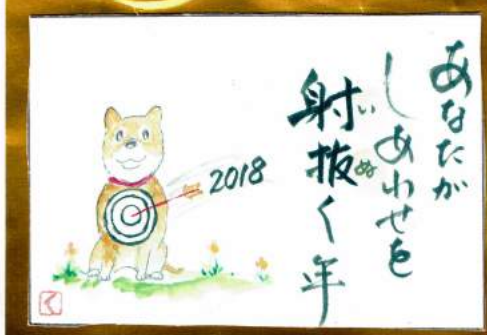 あなたが
しあわせを
射抜く年
いぬ
2018
く